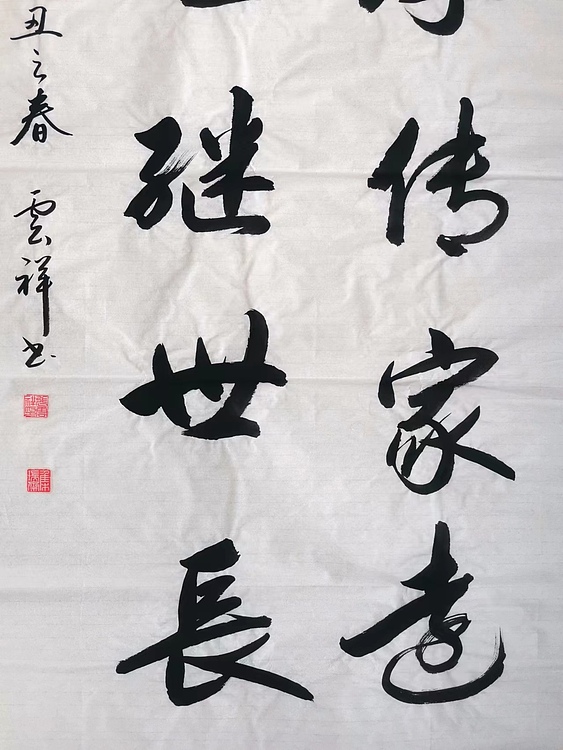 传家远
继世长
丑之春 云祥书